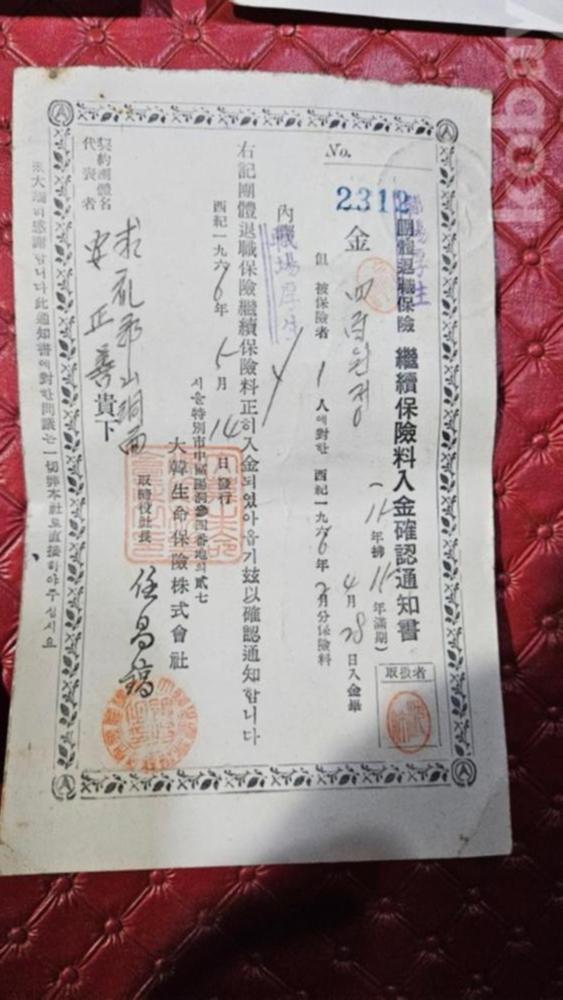 kobay
No.
2312
職場厚生
團體退職保險 繼續保險料入金確認通知書
(11年拂 11年滿期)
取扱者
金 四百원정
但 被保險者 1人에對한 西紀一九六6年2月分保險料
4月28日入金畢
內 職場厚生
右記團體退職保險繼續保險料正히入金되었아옵기玆以確認通知합니다
西紀一九六6年5月14日發行
서울特別市中區陽洞參四番地의貳七
大韓生命保險株式會社
取締役社長 任昌鎬
契約團體名
代表者
求禮郡山洞面
安正善 貴下
感謝합니다此通知書에對한問議는一切弊本社로直接하야주십시요